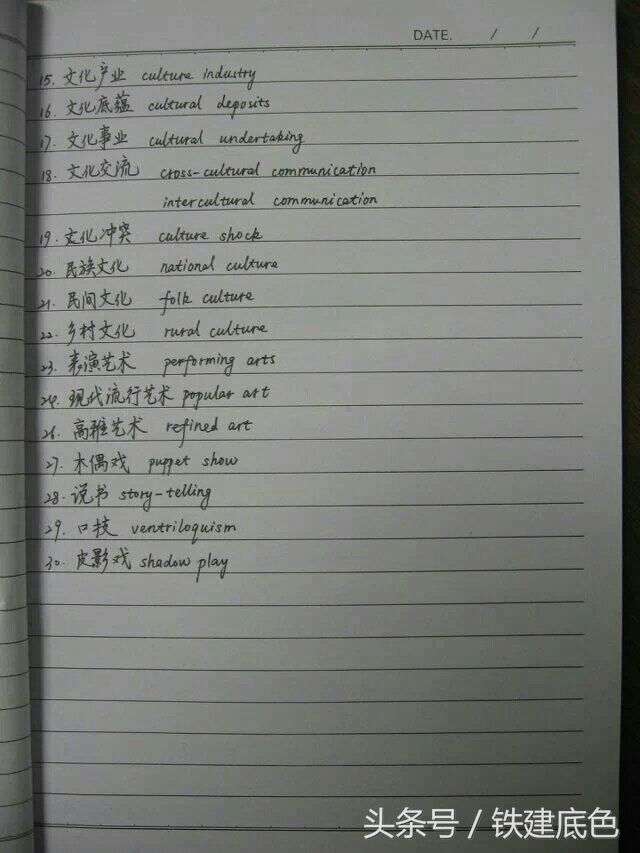 DATE. / /
15. 文化产业 culture industry
16. 文化底蕴 cultural deposits
17. 文化事业 cultural undertaking
18. 文化交流 cross-cultural communication
intercultural communication
19. 文化冲突 culture shock
20. 民族文化 national culture
21. 民间文化 folk culture
22. 乡村文化 rural culture
23. 表演艺术 performing arts
24. 现代流行艺术 popular art
26. 高雅艺术 refined art
27. 木偶戏 puppet show
28. 说书 story-telling
29. 口技 ventriloquism
30. 皮影戏 shadow play
头条号 / 铁建底色